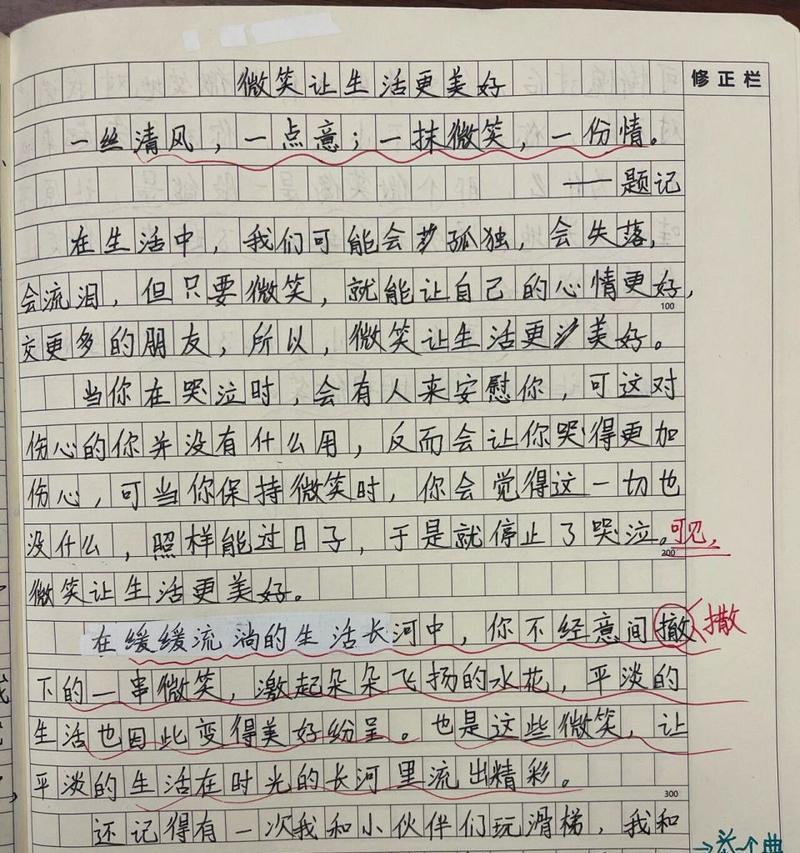 微笑让生活更美好
修正栏
一丝清风，一点意；一抹微笑，一份情。
——题记
在生活中，我们可能会孤独，会失落，
会流泪，但只要微笑，就能让自己的心情更好，
100
交更多的朋友，所以，微笑让生活更美好。
当你在哭泣时，会有人来安慰你，可这对
伤心的你并没有什么用，反而会让你哭得更加
伤心，可当你保持微笑时，你会觉得这一切也
没什么，照样能过日子，于是就停止了哭泣。可见，
200
微笑让生活更美好。
在缓缓流淌的生活长河中，你不经意间撤 撒
下的一串微笑，激起朵朵飞扬的水花，平淡的
生活也因此变得美好纷呈。也是这些微笑，让
平淡的生活在时光的长河里流出精彩。
300
还记得有一次我和小伙伴们玩滑梯，我和